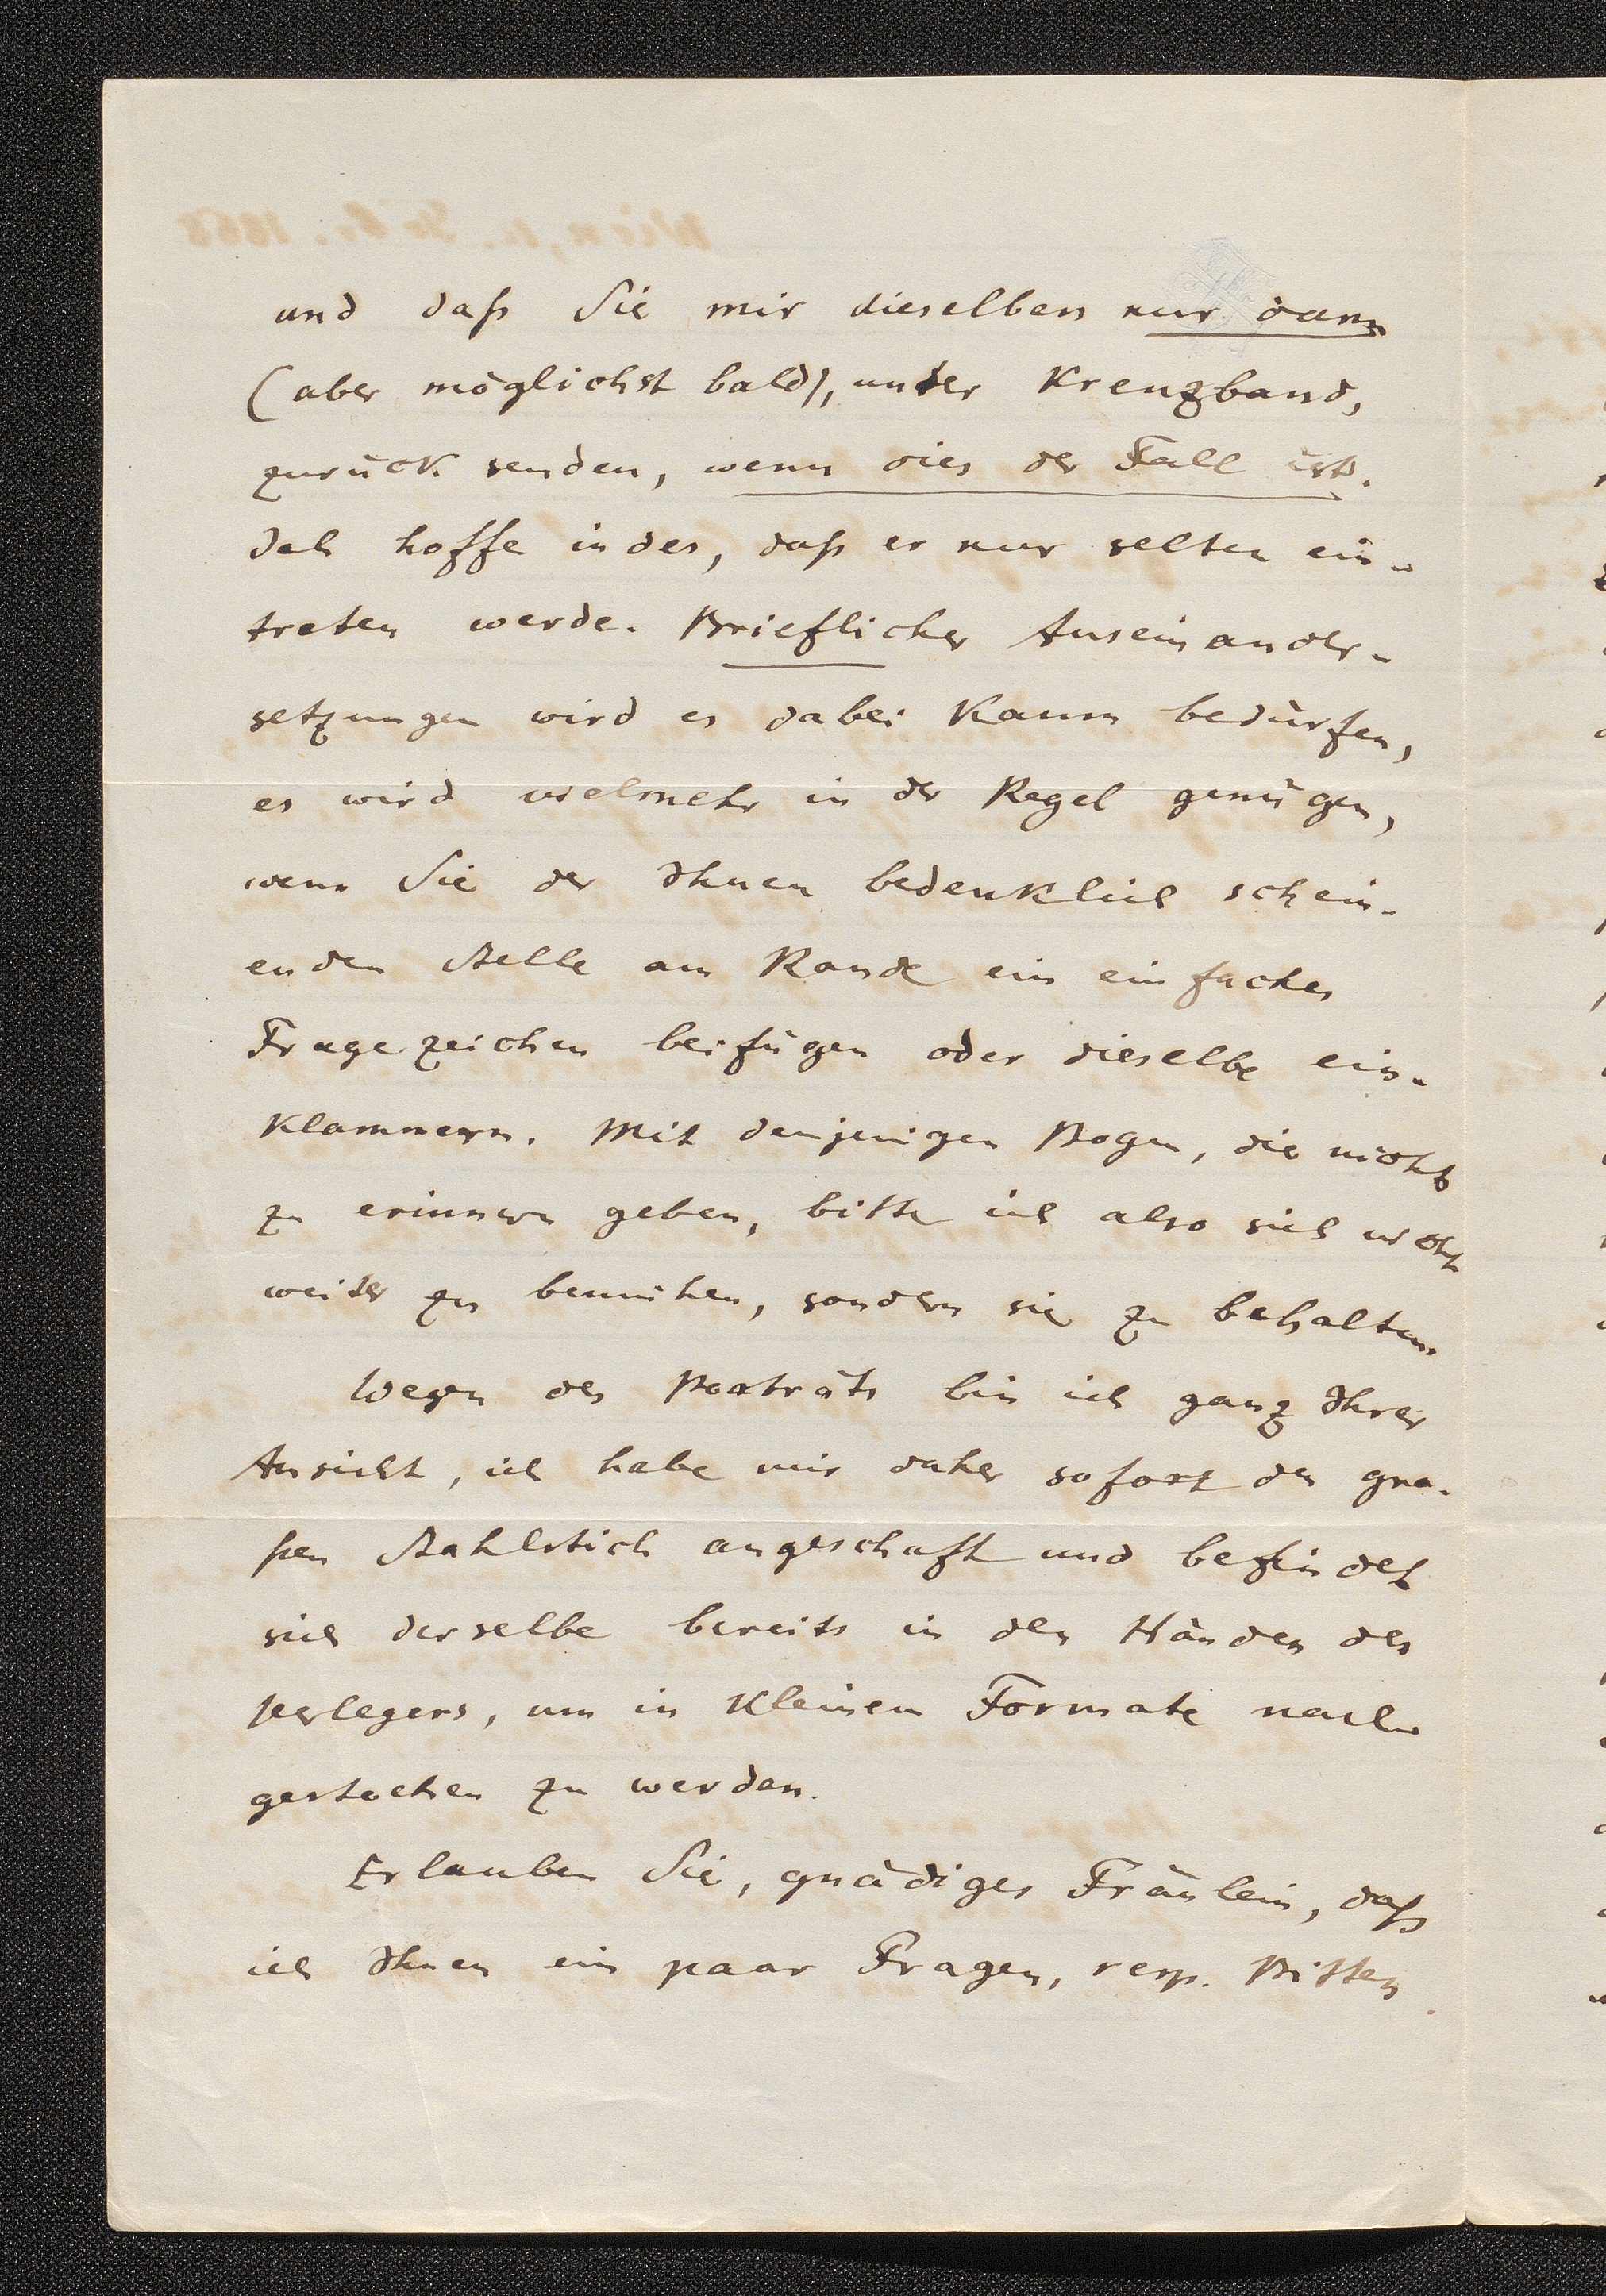 und daß Sie mir dieselben nur dann
(aber möglichst bald), unter Kreuzband,
zurück senden, wenn dies der Fall ist.
Ich hoffe indes, daß er nur selten ein-
treten werde. Brieflicher Auseinander-
setzungen wird es dabei kaum bedürfen,
es wird vielmehr in der Regel genügen,
wenn Sie der Ihnen bedenklich schein-
enden Stelle am Rande ein einfaches
Fragezeichen beifügen oder dieselbe ein-
klammern. Mit denjenigen Bogen, die nichts
zu erinnern geben, bitte ich also sich nicht
weiter zu bemühen, sondern sie zu behalten.
Wegen des Porträts bin ich ganz Ihrer
Ansicht, ich habe mir daher sofort den gro-
ßen Stahlstich angeschafft und befindet
sich derselbe bereits in den Händen des
Verlegers, um in kleinem Formate nach-
gestochen zu werden.
Erlauben Sie, gnädiges Fräulein, daß
ich Ihnen ein paar Fragen, resp. Bitten